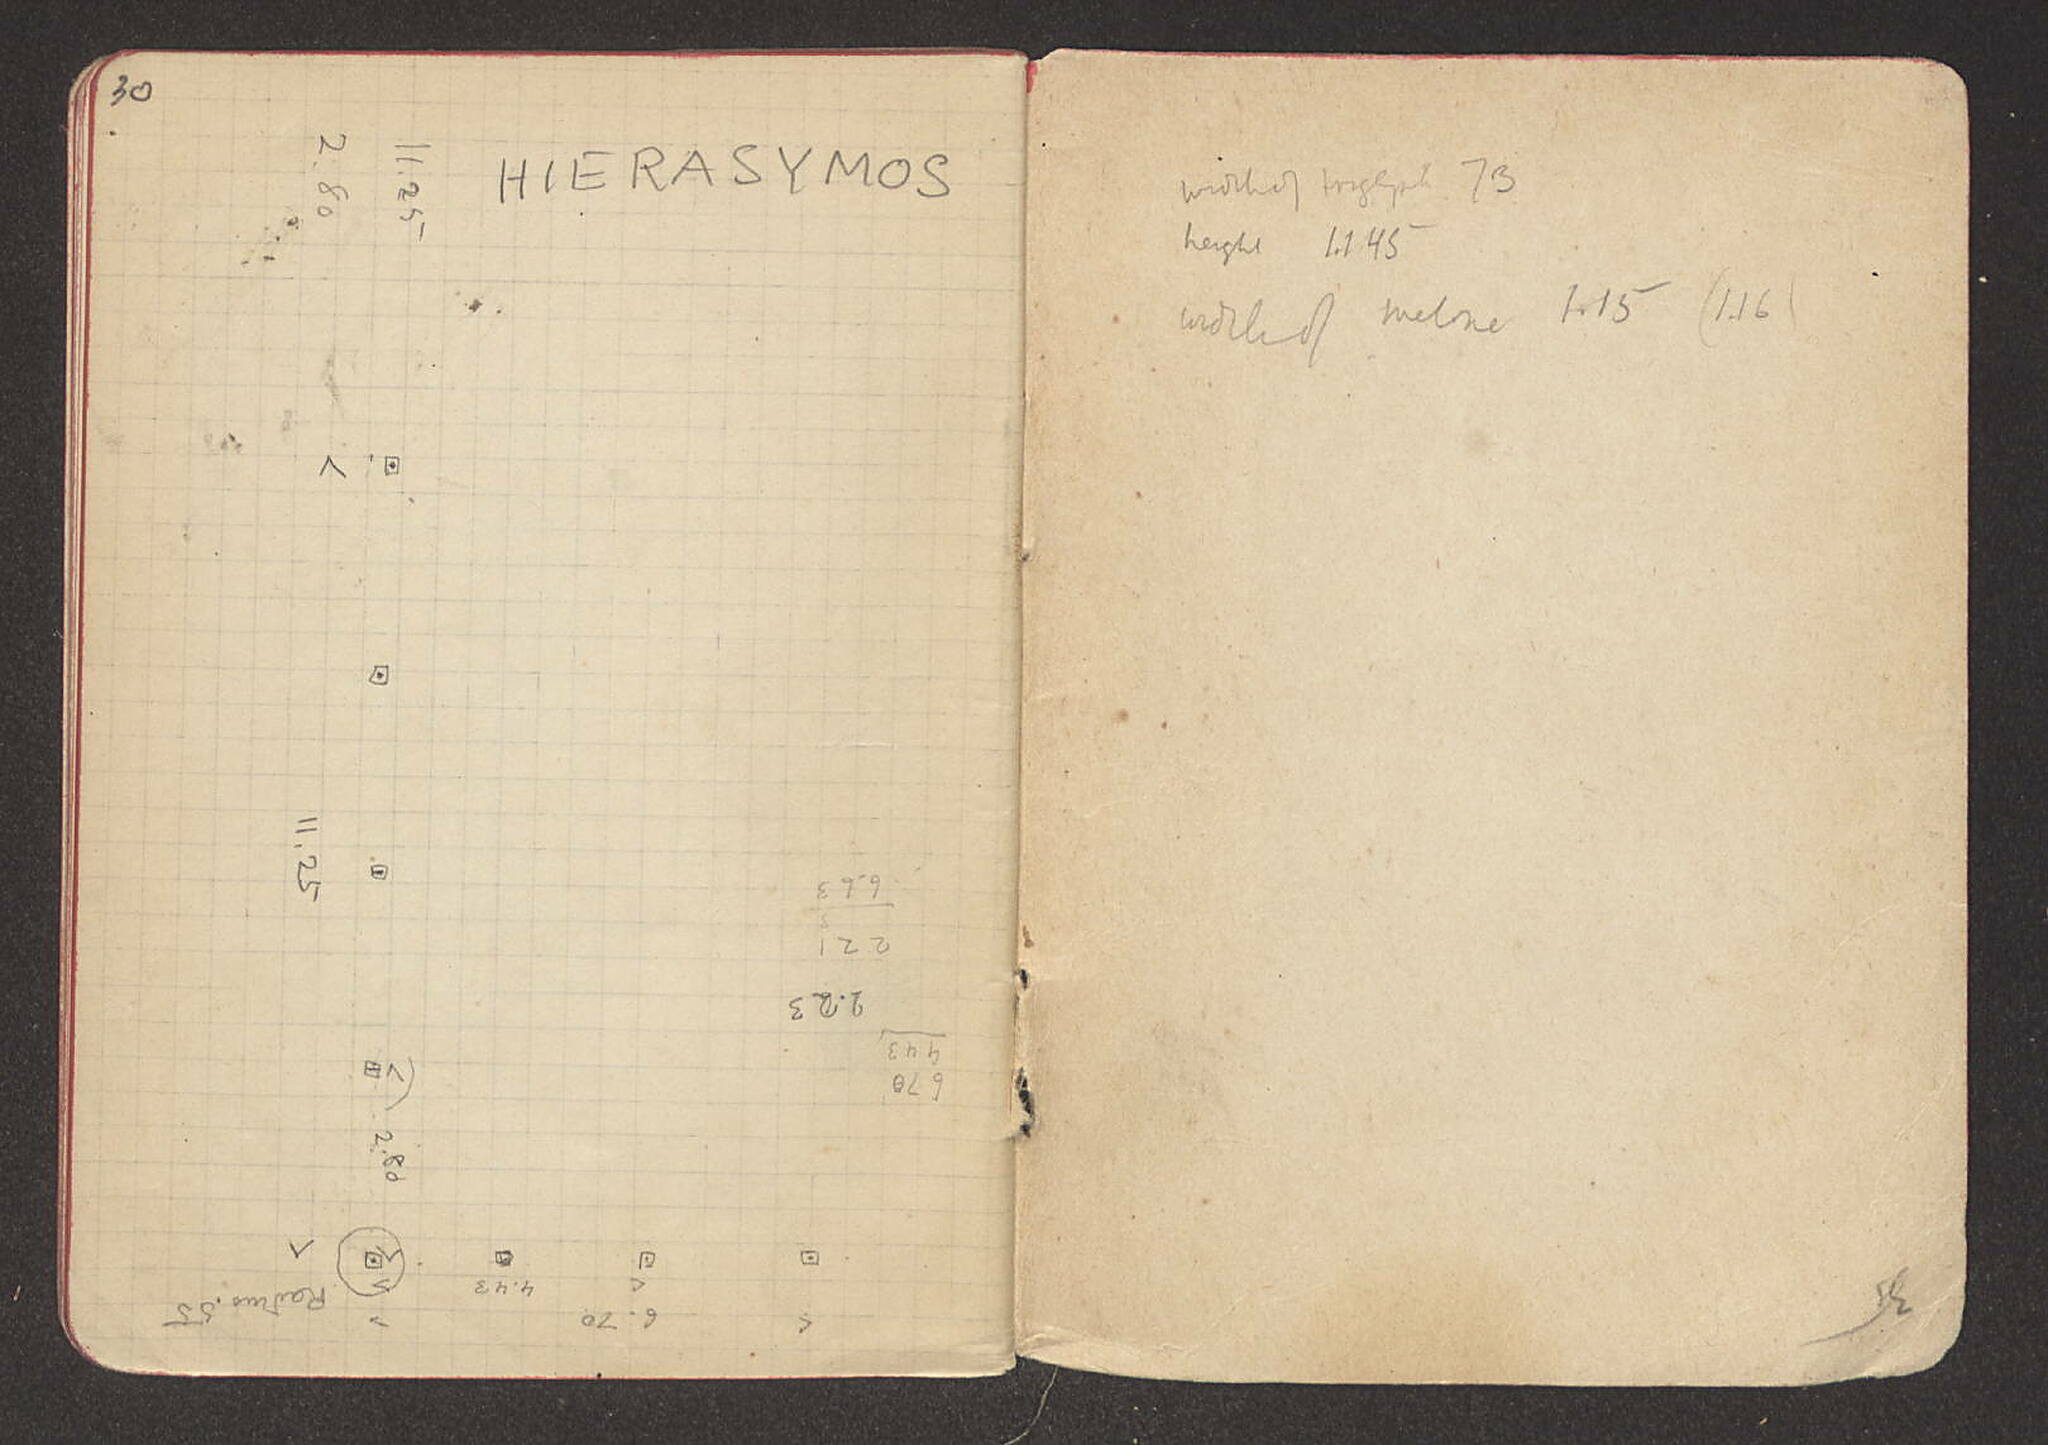 30
11.25
2.80
HIERASYMOS
11.25
6.63
3
2 21
2.23
4 43
6 70
2.80
4.43
6.70
Radius .55
width of triglyph 73
height 1.145
width of metope 1.15 (1.16)